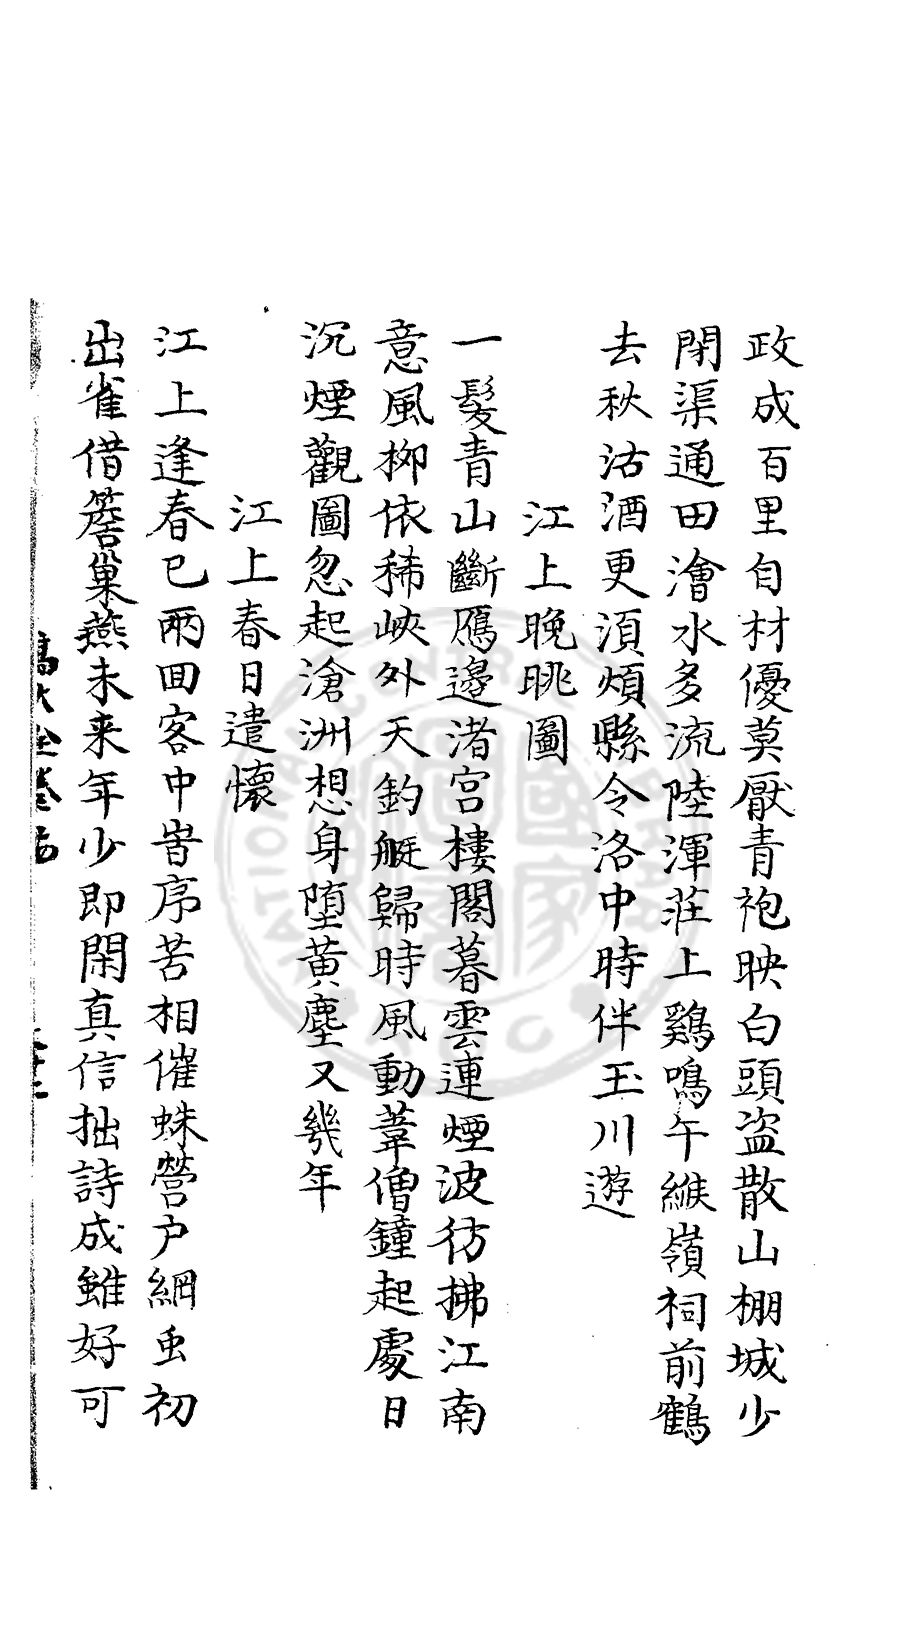 政成百里自材優莫厭青袍映白頭盜散山棚城少
閉渠通田澮水多流陸渾莊上鷄鳴午緱嶺祠前鶴
去秋沽酒更須煩縣令洛中時伴玉川遊
江上晚眺圖
一髮青山斷鴈邊渚宮樓閣暮雲連煙波彷拂江南
意風柳依稀峽外天釣艇歸時風動葦僧鐘起處日
沉煙觀圖忽起滄洲想身墮黃塵又幾年
江上春日遣懷
江上逢春已兩回客中旹序苦相催蛛營户網虫初
出雀借簷巢燕未来年少即閑真信拙詩成雖好可